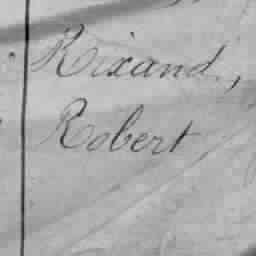 Rixand,
Robert